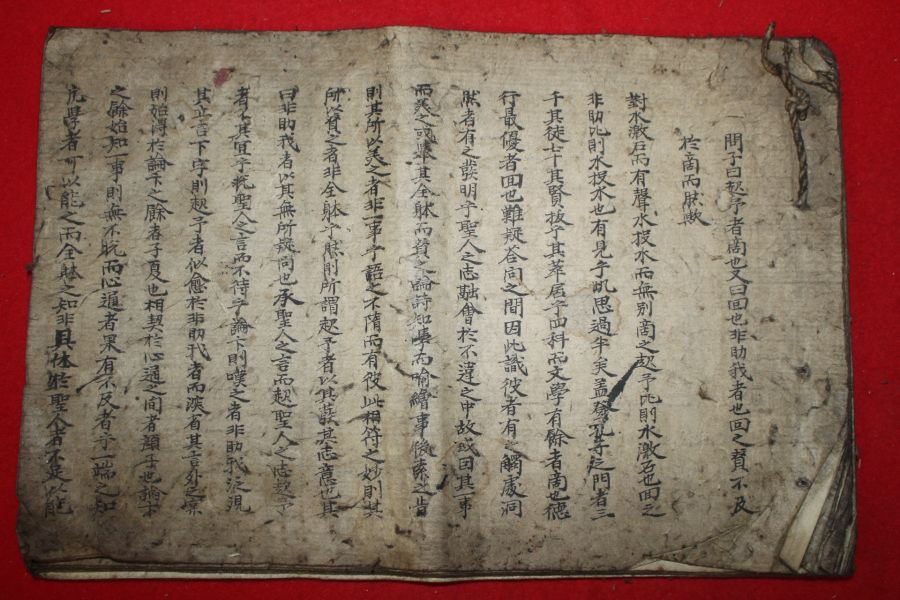 一問子曰起予者商也又曰回也非助我者也回之賢不及
於商而然歟
對水激石而有聲水投水而無別商之起予此則水激石也回之
非助此則水投水也有見乎此思過半矣孟孔子之門者三
千其徒七十其賢拔乎其萃居乎四科而文學有餘者商也德
行最優者回也難疑答問之間因此識彼者有之觸處洞
然者有之發明乎聖人之志融會於不違之中故或因其一事
而美之或擧其全體而贊之論詩知學而喻繪事後素之旨
則其所以美之者非一事乎語之不惰而有彼此相符之妙則其
所以贊之者非全體乎然則所謂起予者以其發其志意也其
曰非助我者以其無所疑問也承聖人之言而起聖人之志起予
者不其宜乎聞聖人之言而不待乎論下則嘆之者非助我泛現
其立言下字則起予者似愈於非助我者而深省其言外之
則始得於論下之餘者子夏也相契於心通之間者顔子也論下
之餘始知一事則無不說而心通者果有不及者乎一端之知
凡學者可以能之而全體之知非具體於聖人者不足以能